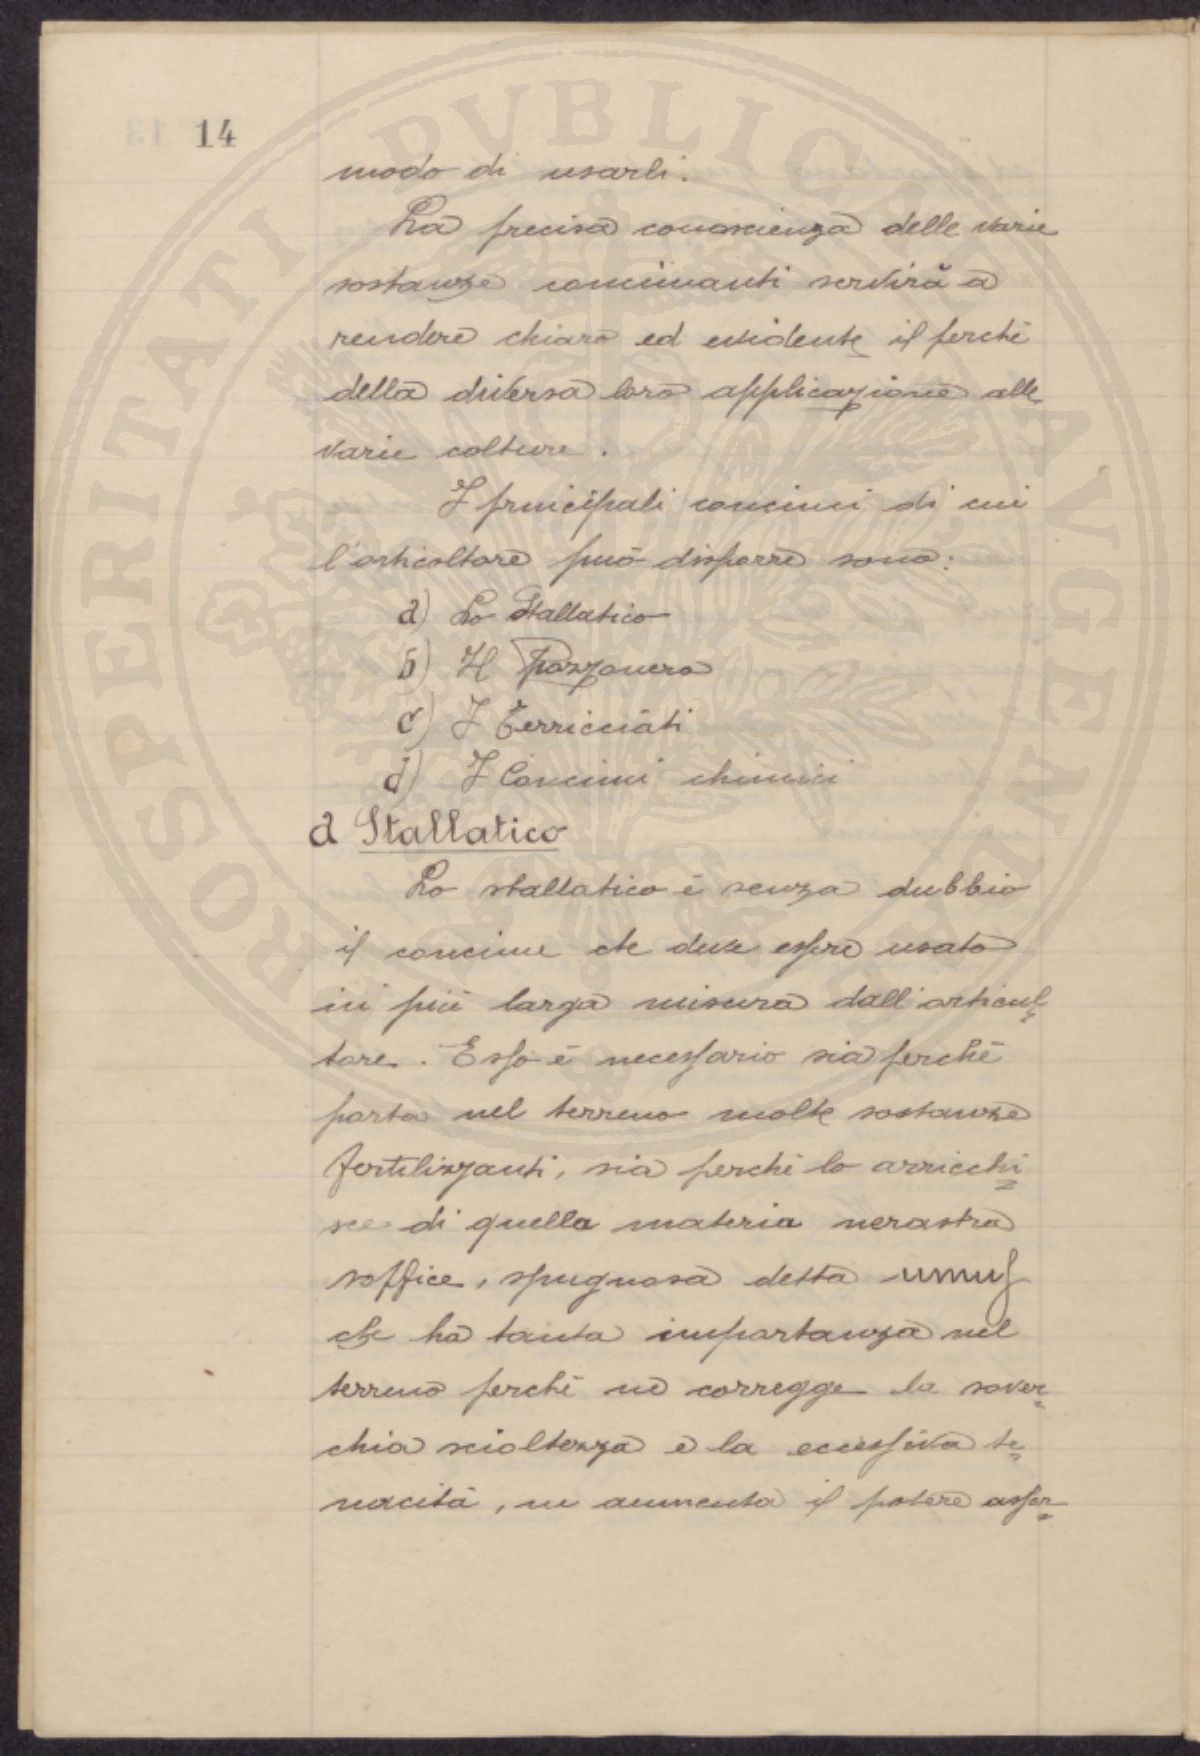 14
modo di usarli.
La precisa conoscienza delle varie
sostanze concimanti servirà a
rendere chiaro ed evidente il perchè
della diversa loro applicazione alle
varie colture.
I principali concimi di cui
l'orticoltore può disporre sono:
a) Lo Stallatico
b) Il Pozzonero
c) I Terricciati
d) I Concimi chimici
a Stallatico
Lo stallatico è senza dubbio
il concime che deve essere usato
in più larga misura dall'orticul=
tore. Esso è necessario sia perchè
porta nel terreno molte sostanze
fertilizzanti, sia perchè lo arricchi=
sce di quella materia nerastra
soffice, spugnosa detta umus
che ha tanta importanza nel
terreno perchè ne corregge la sover=
chia scioltezza e la eccessiva te=
nacità, ne aumenta il potere assor=
PROSPERITATI PVBLICAE AVGENDAE